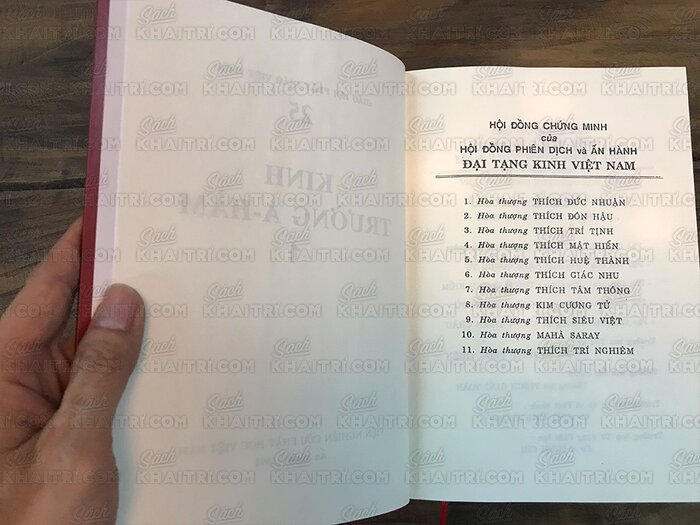 HỘI ĐỒNG CHỨNG MINH
của
HỘI ĐỒNG PHIÊN DỊCH và ẤN HÀNH
ĐẠI TẠNG KINH VIỆT NAM
1. Hòa thượng THÍCH ĐỨC NHUẬN
2. Hòa thượng THÍCH ĐÔN HẬU
3. Hòa thượng THÍCH TRÍ TỊNH
4. Hòa thượng THÍCH MẬT HIỂN
5. Hòa thượng THÍCH HUỆ THÀNH
6. Hòa thượng THÍCH GIÁC NHU
7. Hòa thượng THÍCH TÂM THÔNG
8. Hòa thượng KIM CƯƠNG TỬ
9. Hòa thượng THÍCH SIÊU VIỆT
10. Hòa thượng MAHÀ SARAY
11. Hòa thượng THÍCH TRÍ NGHIÊM
25
KINH
TRƯỜNG A-HÀM
I
VIỆN NGHIÊN CỨU PHẬT HỌC VIỆT NAM
Sách
KHAITRI.COM